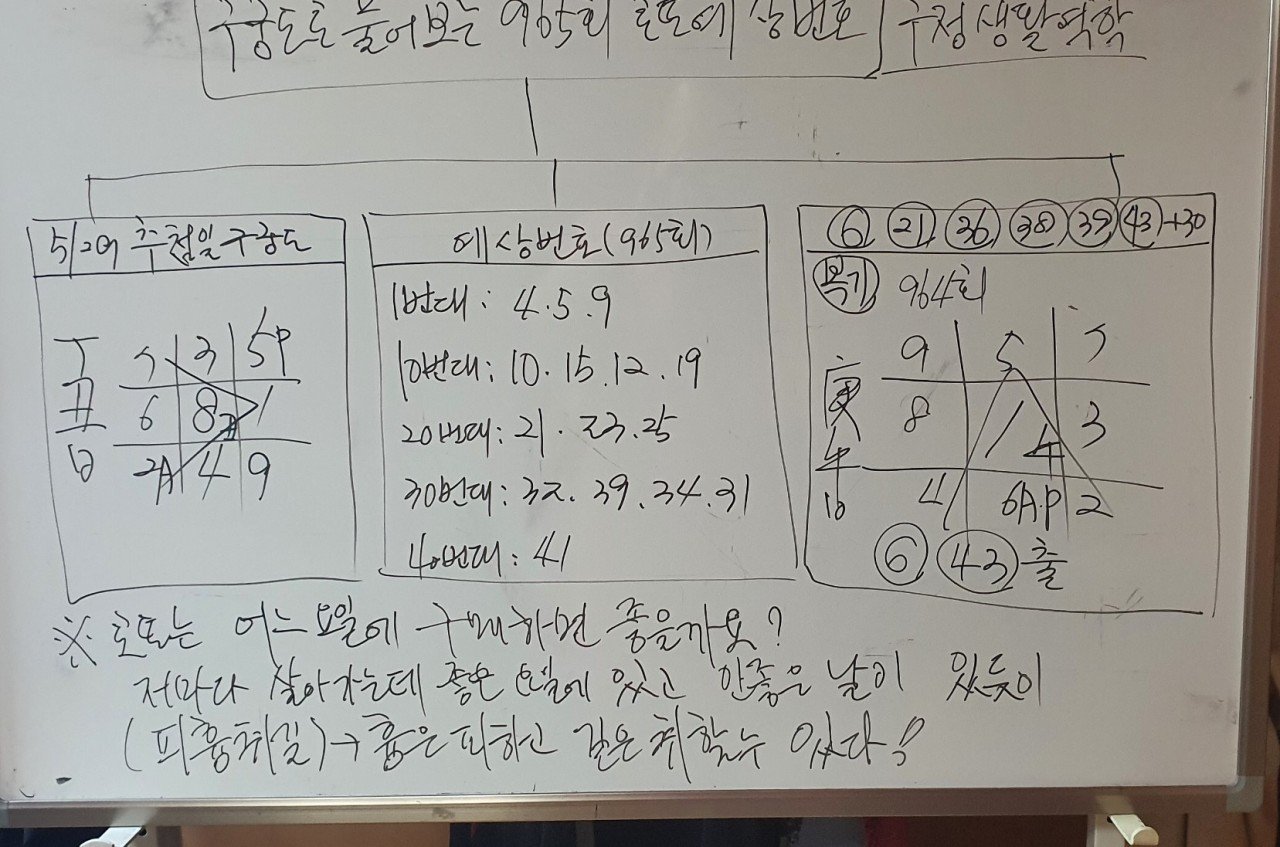 구궁도로 풀어보는 965회 로또예상번호 수정생활역학
5/29 추첨일 구궁도
丁 7 3 5P
丑 6 8 1
日 2A 4 9
예상번호(965회)
1번대: 4.5.9
10번대: 10.15.12.19
20번대: 21.23.25
30번대: 32.39.34.31
40번대: 41
6 21 36 38 39 43+30
복기 964회
9 5 7
庚 8 1 3
午
日 4 6A.P 2
6 43 출
※ 로또는 어느요일에 구매하면 좋을까요?
저마다 살아가는데 좋은 요일에 있고 안좋은 날이 있듯이
(피흉취길)→흉은 피하고 길은 취할수 있다!